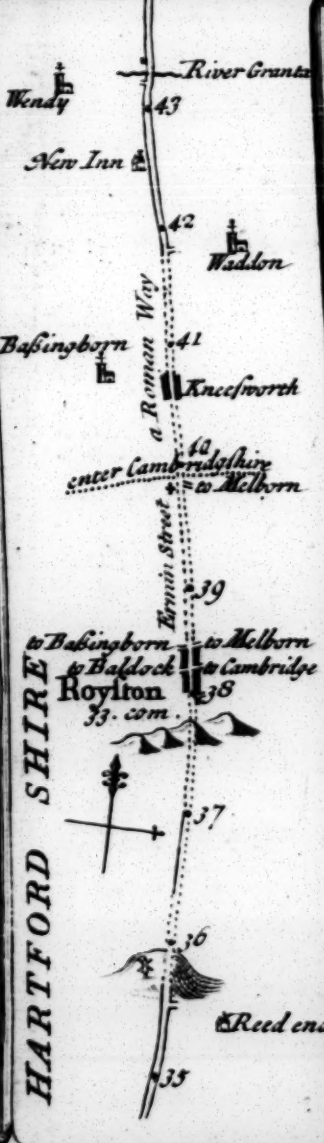 River Granta
Wendy
43
New Inn
42
Waddon
a Roman Way
41
Baſsingborn
Kneeſworth
40
enter Cambridgſhire
to Melborn
Ermin Street
39
to Baſsingborn
to Melborn
to Baldock
to Cambridge
Royſton
38
33. com.
37
HARTFORD SHIRE
36
Reed end
35